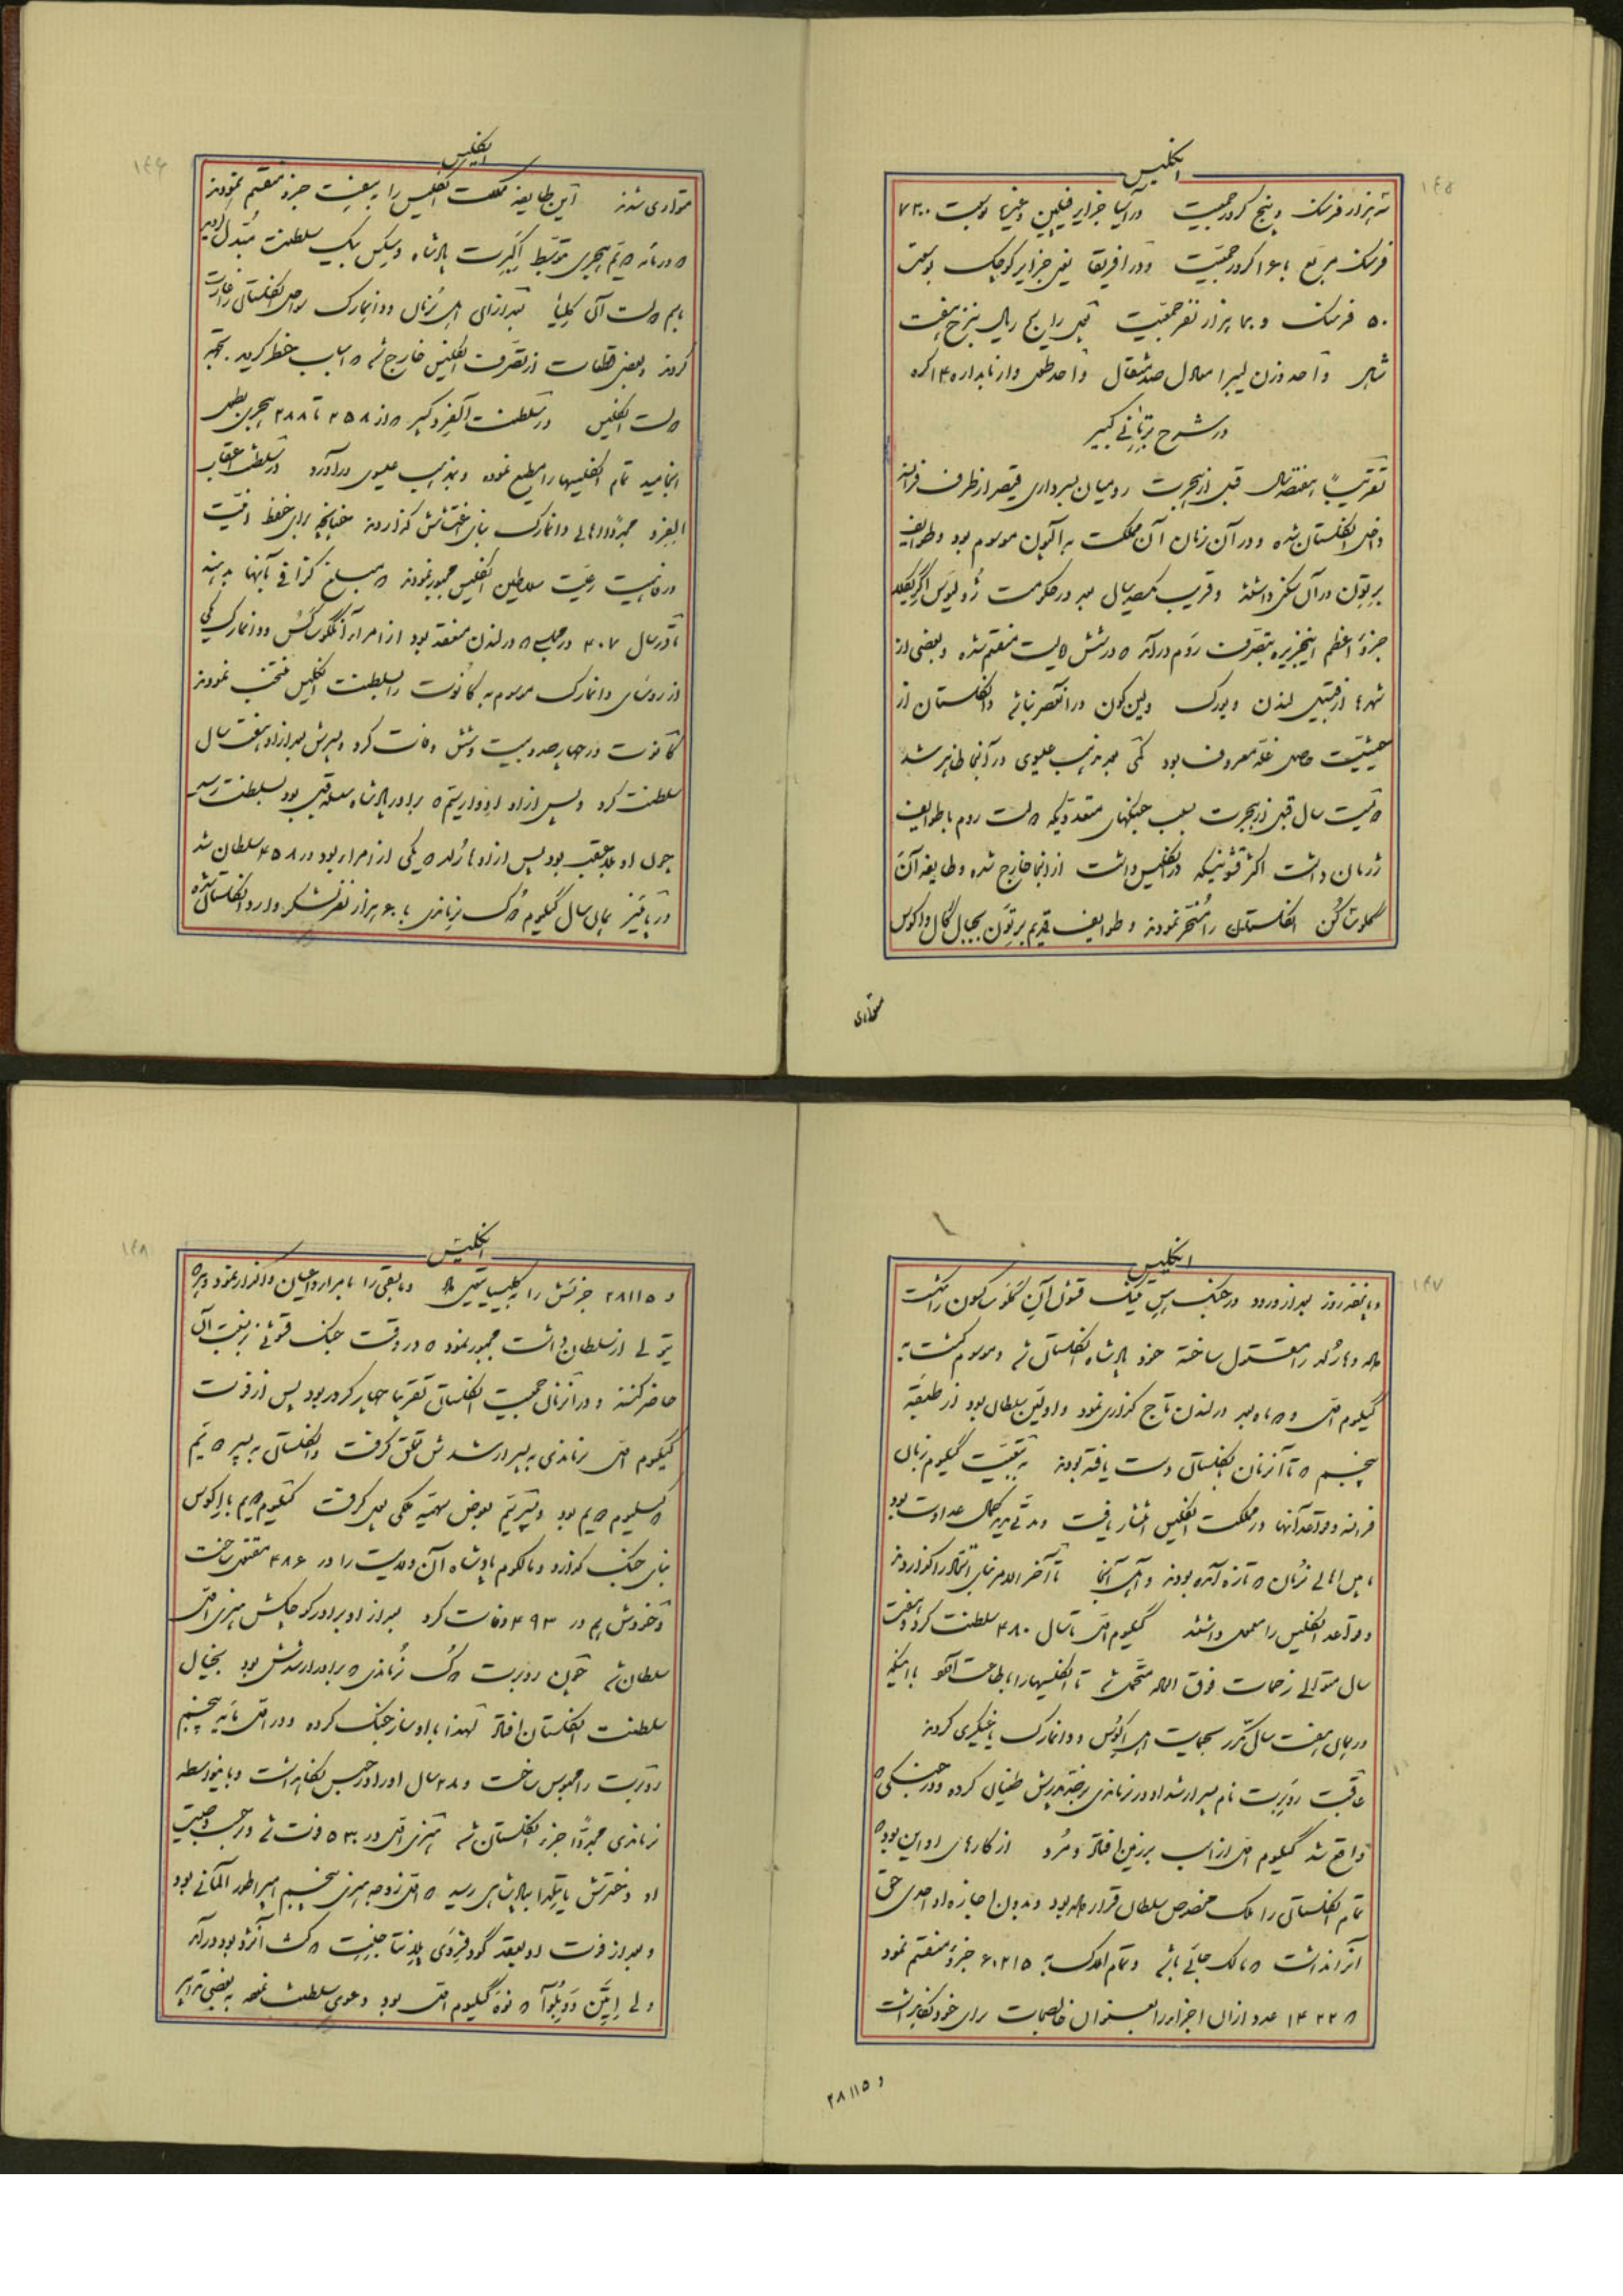 انگلیس
۱۴۵
سه هزار فرسنگ و پنج کرور جمعیت در آسیا جزایر فیلیپین و غیرها بوسعت ۷۳۰۰
فرسنگ مربع با ۱۶ کرور جمعیت و در افریقا یعنی جزایر کوچک بوسعت
۵۰ فرسنگ و هزار نفر جمعیت رایج ریال بنرخ هفت
شاهی واحد وزن لیبرا معادل صد مثقال واحد طول وارا
در شرح بریتانی کبیر
تقریباً هفتصد سال قبل از هجرت رومیان بسرداری قیصر از طرف فرانسه
داخل انگلستان شده و در آن زمان آن مملکت به آلبیون موسوم بود و طوایف
برتون در آن سکنی داشتند و قریب یکصد سال بعد در حکومت ژولیوس اگریکلا
جزو اعظم اینجزیره بتصرف روم درآمد که در شش ایالت منقسم شده و بعضی از
شهرها از قبیل لندن و یورک و لین‌کون در آنعصر بنا شد و انگلستان از
حیثیت حاصل غله معروف بود کمی بعد مذهب عیسوی در آنجا ظاهر شد
دویست سال قبل از هجرت بسبب جنگهای متعدد که دولت روم با طوایف
ژرمان داشت اکثر قشونیکه در انگلیس داشت از آنجا خارج شده و طایفه آن
گلوساکسن انگلستان را مسخر نمودند و طوایف قدیم برتون بجبال گال و اکوس
متواری
انگلیس
۱۴۶
متواری شدند این طایفه مملکت انگلیس را به هفت جزو منقسم نمودند
که در مائه دویم هجری بتوسط اگبرت پادشاه وسکس بیک سلطنت مبدل گردید
بعد از آن اهل نرمان و دانمارک سواحل انگلستان را غارت
کردند و بعضی قطعات از تصرف انگلیس خارج شد که اسباب خطر گردید بجهة
دولت انگلیس در سلطنت آلفرد کبیر که از ۲۵۸ تا ۲۸۸ هجری بطول
انجامید تمام انگلیسها را مطیع نموده و بمذهب عیسوی درآورد در سلطنت اعقاب
الفرد مجدداً اهالی دانمارک بنای اغتشاش گذاردند چنانچه برای حفظ امنیت
و رفاهیت رعیت سلاطین انگلیس مجبور نمودند که مبلغ گزافی بآنها بدهند
تا در سال ۴۰۷ در مجلسی که در لندن منعقد بود از امراء آنگلوساکس و دانمارک یکی
از روسای دانمارک موسوم به کانوت را بسلطنت انگلیس منتخب نمودند
کانوت در چهارصد و بیست و شش وفات کرد و پسرش بعد از او هفت سال
سلطنت کرد و پس از او ادوارد سیم که برادر پادشاه سلسله قبل بود بسلطنت رسید
چون او بلاعقب بود پس از او هارلد که یکی از امراء بود در ۴۵۸ سلطان شد
در پائیز همان سال گیلوم دک نرماندی با ۶۰ هزار نفر لشکر وارد انگلستان شده
انگلیس
۱۴۷
و پانزده روز بعد از ورود در جنگ هستینک قشون آن گلوساکسون را شکست
داده و هارلد را مقتول ساخته خود پادشاه انگلستان شد و موسوم گشت به
گیلوم اول و دو ماه بعد در لندن تاج گذاری نمود و اولین سلطان بود از طبقه
پنجم که تا آنزمان بانگلستان دست یافته بودند به تبعیت گیلوم زبان
فرانسه و قواعد آنها در مملکت انگلیس انتشار یافت و مدتی مدید کمال عداوت بود
مابین اهالی نرمان که تازه آمده بودند و اهل آنجا تا آخر الامر بنای اتحاد را گذاردند
و قواعد انگلیس را معمول داشتند گیلوم اول تا سال ۴۸۰ سلطنت کرد و هفت
سال متوالی زحمات فوق العاده متحمل شد تا انگلیسها را باطاعت آورد با اینکه
در همان هفت سال مکرر بحمایت اهل اکوس و دانمارک یاغیگری کردند
عاقبت روبرت نام پسر ارشد او در نرماندی برضد پدرش طغیان کرده و در جنگی که
واقع شد گیلوم اول از اسب بزمین افتاد و مرد از کارهای او این بود که
تمام انگلستان را ملک مخصوص سلطان قرار داده بود و بدون اجازه او احدی حق
آنرا نداشت که مالک جائی باشد و تمام املاک به ۶۰۲۱۵ جزو منقسم نمود
که ۱۴۲۲ عدد از آن اجزاء را بعنوان خالصجات برای خود نگاهداشت
و ۲۸۱۱۵
انگلیس
۱۴۸
و ۲۸۱۱۵ جزئش را به کلیسیا بخشید و مابقی را بامراء و اعیان واگذار نمود و هر که
تیولی از سلطان داشت مجبور نمود که در وقت جنگ قشونی به نسبت آن
حاضر کنند و در آنزمان جمعیت انگلستان تقریبا چهار کرور بود پس از فوت
گیلوم اول نرماندی به پسر ارشدش تعلق گرفت و انگلستان به پسر دویم
که گیلوم دویم بود و پسر سیم بعوض سهمیه ملکی پول گرفت گیلوم دویم با اکوس
بنای جنگ گذارد و مالکوم پادشاه آن ولایت را در ۴۸۶ مقتول ساخت
و خودش هم در ۴۹۳ وفات کرد بعد از او برادر کوچکش هنری اول
سلطان شد چون روبرت دک نرماندی که برادر ارشدش بود بخیال
سلطنت انگلستان افتاد لهذا با او ساز جنگ کرده و در اول مائه پنجم
روبرت را محبوس ساخت و ۲۸ سال او را در حبس نگاهداشت و باینواسطه
نرماندی مجدداً جزو انگلستان شد هنری اول در ۵۳۰ فوت شد و برحسب وصیت
او دخترش ماتیلدا بپادشاهی رسید که اول زوجه هنری پنجم امپراطور المانی بود
و بعد از فوت او بعقد گودفروی پلانتاجنیت که کنت آنژو بود درآمد
ولی اتین دوبلوآ که نوه گیلوم اول بود دعوی سلطنت نموده به بعضی تدابیر